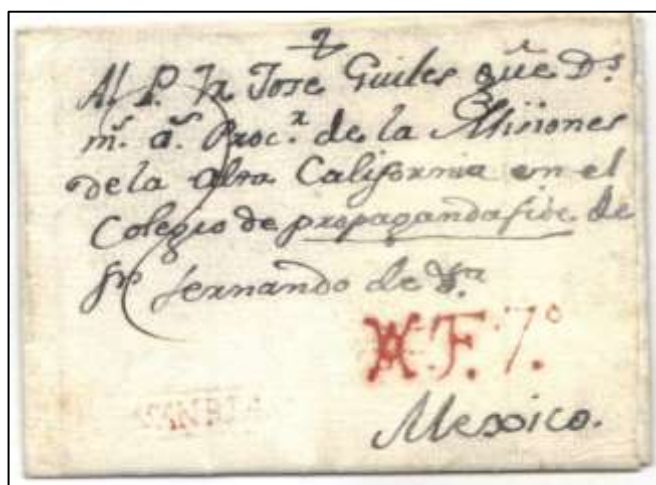 Al P. Fr Jose Guiles que Ds.
ms. as. Procr. de la Misiones
de la alta California en el
Colegio de propagandafide de
Sn fernando de
F. 7.°
SAN BLAS
Mexico.